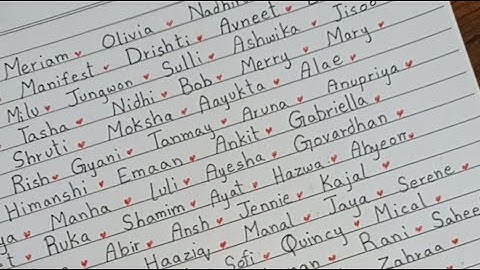 Meriam ♥ Olivia ♥
Manifest ♥ Drishti ♥ Avneet ♥
Milu ♥ Jungwon ♥ Sulli ♥ Ashwika ♥ Jisoo
Tasha ♥ Nidhi ♥ Bob ♥ Merry ♥ Mary ♥
Shruti ♥ Moksha ♥ Aayukta ♥ Alae ♥
Rish ♥ Gyani ♥ Tanmay ♥ Aruna ♥ Anupriya ♥
Himanshi ♥ Emaan ♥ Ankit ♥ Gabriella ♥
Manha ♥ Luli ♥ Ayesha ♥ Govardhan ♥
Ruka ♥ Shamim ♥ Ayat ♥ Hazwa ♥ Ahyeon ♥
Abir ♥ Ansh ♥ Jennie ♥ Kajal ♥
Haaziq ♥ Manal ♥ Jaya ♥ Serene ♥
Sofi ♥ Quincy ♥ Mical ♥
Rani ♥
Zahraa ♥